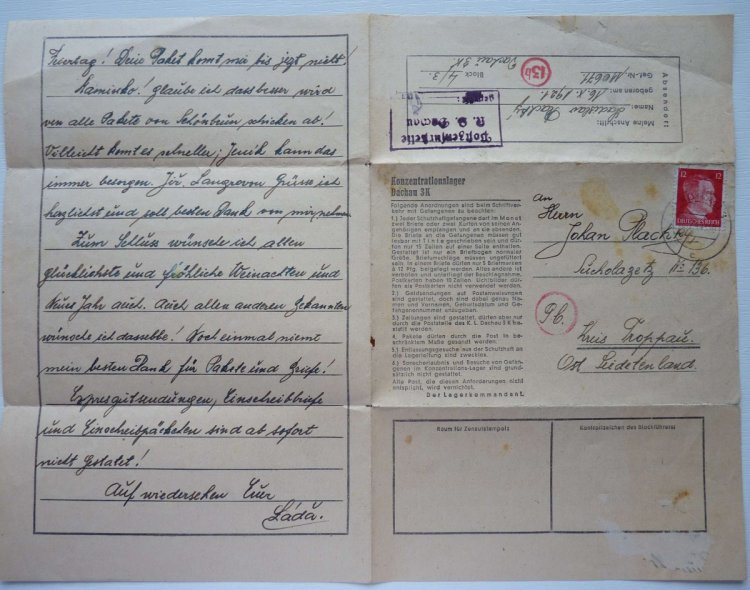 Feiertag! Deie Paket komt mir bis jezt nicht!
Kaminsko! glaube ich dass besser wird
ven alle Pakete von Schönbrun schicken ab!
Villeicht komt es schneller; Jenik kann das
immer besorgen. Für Langrovon Grüsse ich
hezlichst und soll besten Dank von mir nehmen.
Zum Schluss wünsche ich allen
glücklichste und fröhliche Weinachten und
Neus Jahr auch. Auch allen anderen Bekannten
wünsche ich dasubbe! Noch einmal niemt
mein besten Dank für Pakete und Grüße!
Expresgutsendungen, Einschreibbriefe
und Einschreibpäckchen sind ab sofort
nicht gestatet!
Auf wiedersehen Euer
Láďa.
Absendort
Meine Anschrift:
Name: Ladislav Plachký
geboren am: 16.X.1921.
Gef.-Nr.
Block 4/3.
Dachau 3K
13b
Postzensurstelle
K. L. Dachau
geprüft:
Konzentrationslager
Dachau 3K
Folgende Anordnungen sind beim Schriftver-
kehr mit Gefangenen zu beachten:
1.) Jeder Schutzhaftgefangene darf im Monat
zwei Briefe oder zwei Karten von seinen An-
gehörigen empfangen und an sie absenden.
Die Briefe an die Gefangenen müssen gut
lesbar mit Tinte geschrieben sein und dürfen
nur 15 Zeilen auf einer Seite enthalten.
Gestattet ist nur ein Briefbogen normaler
Größe. Briefumschläge müssen ungefüttert
sein. In einem Briefe dürfen nur 5 Briefmarken
à 12 Pfg. beigelegt werden. Alles andere ist
verboten und unterliegt der Beschlagnahme.
Postkarten haben 10 Zeilen. Lichtbilder dürfen
als Postkarten nicht verwendet werden.
2.) Geldsendungen auf Postanweisungen sind
gestattet, doch sind dabei genau Namen
und Vornamen, Geburtsdatum und Ge-
fangenennummer anzugeben.
3.) Zeitungen sind gestattet, dürfen aber nur
durch die Poststelle des K. L. Dachau 3 K be-
stellt werden.
4.) Pakete dürfen durch die Post in be-
schränktem Maße gesandt werden.
5.) Entlassungsgesuche aus der Schutzhaft an
die Lagerleitung sind zwecklos.
6.) Sprecherlaubnis und Besuche von Gefan-
genen im Konzentrations-Lager sind grund-
sätzlich nicht gestattet.
Alle Post, die diesen Anforderungen nicht
entspricht, wird vernichtet.
Der Lagerkommandant.
12 12
DEUTSCHES REICH
An
Herrn
Johan Plachky
Sucholazetz № 136.
Pb.
Kreis Troppau.
Ost Sudetenland.
Raum für Zensurstempel
Kontrollzeichen des Blockführers